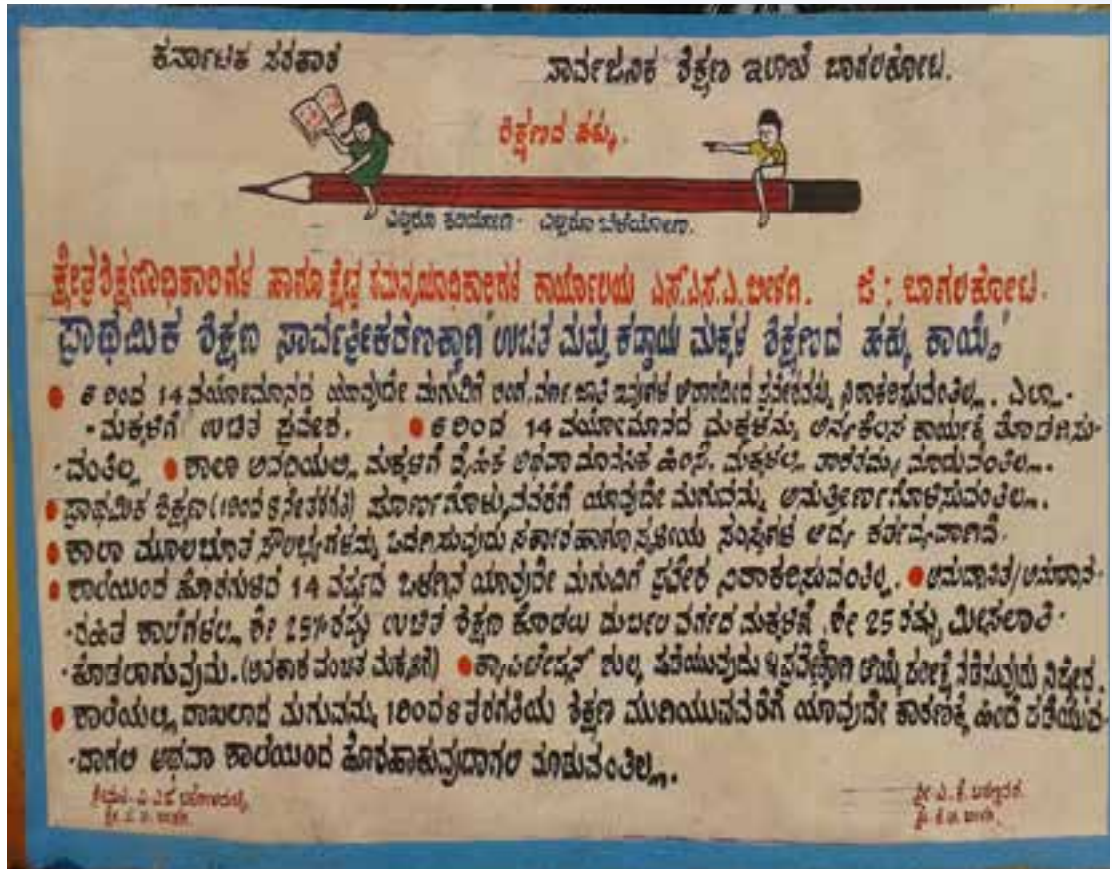 ಕರ್ನಾಟಕ ಸರಕಾರ ಸಾರ್ವಜನಿಕ ಶಿಕ್ಷಣ ಇಲಾಖೆ ಬಾಗಲಕೋಟ.
ಶಿಕ್ಷಣದ ಹಕ್ಕು.
ಎಲ್ಲರೂ ಕಲಿಯೋಣ- ಎಲ್ಲರೂ ಬೆಳೆಯೋಣ.
ಕ್ಷೇತ್ರಶಿಕ್ಷಣಾಧಿಕಾರಿಗಳ ಹಾಗೂ ಕ್ಷೇತ್ರ ಸಮನ್ವಯಾಧಿಕಾರಿಗಳ ಕಾರ್ಯಾಲಯ ಎಸ್.ಎಸ್.ಎ. ಬೀಳಗಿ. ಜಿ: ಬಾಗಲಕೋಟ.
ಪ್ರಾಥಮಿಕ ಶಿಕ್ಷಣ ಸಾರ್ವತ್ರೀಕರಣಕ್ಕಾಗಿ "ಉಚಿತ ಮತ್ತು ಕಡ್ಡಾಯ ಮಕ್ಕಳ ಶಿಕ್ಷಣದ ಹಕ್ಕು ಕಾಯ್ದೆ"
● 6 ರಿಂದ 14 ವಯೋಮಾನದ ಯಾವುದೇ ಮಗುವಿಗೆ ಲಿಂಗ, ವರ್ಣ, ಜಾತಿ ಇವುಗಳ ಆಧಾರದಿಂದ ಪ್ರವೇಶವನ್ನು ನಿರಾಕರಿಸುವಂತಿಲ್ಲ. ಎಲ್ಲಾ-
-ಮಕ್ಕಳಿಗೆ ಉಚಿತ ಪ್ರವೇಶ. ● 6 ರಿಂದ 14 ವಯೋಮಾನದ ಮಕ್ಕಳನ್ನು ಅನ್ಯಕೆಲಸ ಕಾರ್ಯಕ್ಕೆ ತೊಡಗಿಸು-
-ವಂತಿಲ್ಲ ● ಶಾಲಾ ಅವಧಿಯಲ್ಲಿ ಮಕ್ಕಳಿಗೆ ದೈಹಿಕ ಅಥವಾ ಮಾನಸಿಕ ಹಿಂಸೆ, ಮಕ್ಕಳಲ್ಲಿ ತಾರತಮ್ಯ ಮಾಡುವಂತಿಲ್ಲ.
● ಪ್ರಾಥಮಿಕ ಶಿಕ್ಷಣ (1ರಿಂದ 8ನೇತರಗತಿ) ಪೂರ್ಣಗೊಳ್ಳುವವರೆಗೆ ಯಾವುದೇ ಮಗುವನ್ನು ಅನುತ್ತೀರ್ಣಗೊಳಿಸುವಂತಿಲ್ಲ.
● ಶಾಲಾ ಮೂಲಭೂತ ಸೌಲಭ್ಯಗಳನ್ನು ಒದಗಿಸುವುದು ಸರ್ಕಾರ ಹಾಗೂ ಸ್ಥಳೀಯ ಸಂಸ್ಥೆಗಳ ಆದ್ಯ ಕರ್ತವ್ಯವಾಗಿದೆ.
● ಶಾಲೆಯಿಂದ ಹೊರಗುಳಿದ 14 ವರ್ಷದ ಒಳಗಿನ ಯಾವುದೇ ಮಗುವಿಗೆ ಪ್ರವೇಶ ನಿರಾಕರಿಸುವಂತಿಲ್ಲ. ● ಅನುದಾನಿತ/ಅನುದಾನ-
-ರಹಿತ ಶಾಲೆಗಳಲ್ಲಿ ಶೇ 25%ರಷ್ಟು ಉಚಿತ ಶಿಕ್ಷಣ ಕೊಡಲು ದುರ್ಬಲ ವರ್ಗದ ಮಕ್ಕಳಿಗೆ ಶೇ 25 ರಷ್ಟು ಮೀಸಲಾತಿ-
-ಕೊಡಲಾಗುವುದು. (ಅವಕಾಶ ವಂಚಿತ ಮಕ್ಕಳಿಗೆ) ● ಕ್ಯಾಪಿಟೇಷನ್ ಶುಲ್ಕ ಪಡೆಯುವುದು ಪ್ರವೇಶಕ್ಕಾಗಿ ಆಯ್ಕೆ ಪರೀಕ್ಷೆ ನಡೆಸುವುದು ನಿಷೇಧ.
● ಶಾಲೆಯಲ್ಲಿ ದಾಖಲಾದ ಮಗುವನ್ನು 1ರಿಂದ 8 ತರಗತಿಯ ಶಿಕ್ಷಣ ಮುಗಿಯುವವರೆಗೆ ಯಾವುದೇ ಕಾರಣಕ್ಕೆ ಹಿಂದೆ ಪಡೆಯುವ-
-ದಾಗಲಿ ಅಥವಾ ಶಾಲೆಯಿಂದ ಹೊರಹಾಕುವುದಾಗಲಿ ಮಾಡುವಂತಿಲ್ಲ.